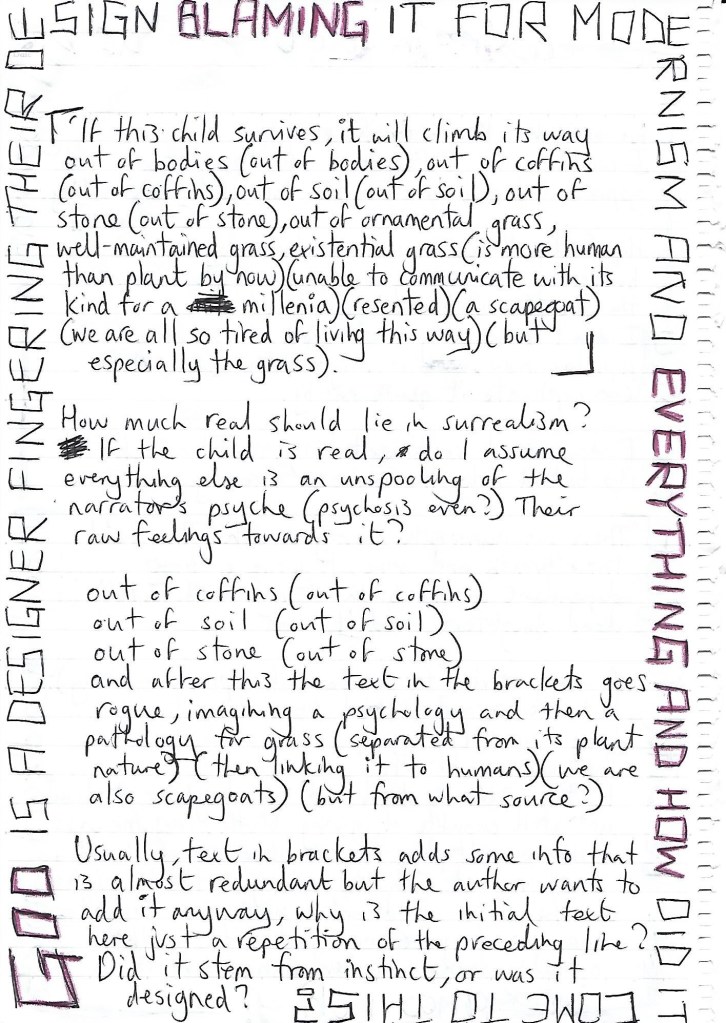 GOD IS A DESIGNER FINGERING THEIR DE
SIGN BLAMING IT FOR MODE
RNISM AND EVERYTHING AND HOW DID IT
COME TO THIS?
"If this child survives, it will climb its way
out of bodies (out of bodies), out of coffins
(out of coffins), out of soil (out of soil), out of
stone (out of stone), out of ornamental grass,
well-maintained grass, existential grass (is more human
than plant by now) (unable to communicate with its
kind for a millenia) (resented) (a scapegoat)
(we are all so tired of living this way) (but
especially the grass).
How much real should lie in surrealism?
If the child is real, do I assume
everything else is an unspooling of the
narrator's psyche (psychosis even?) Their
raw feelings towards it?
out of coffins (out of coffins)
out of soil (out of soil)
out of stone (out of stone)
and after this the text in the brackets goes
rogue, imagining a psychology and then a
pathology for grass (separated from its plant
nature) (then linking it to humans) (we are
also scapegoats) (but from what source?)
Usually, text in brackets adds some info that
is almost redundant but the author wants to
add it anyway, why is the initial text
here just a repetition of the preceding line?
Did it stem from instinct, or was it
designed?